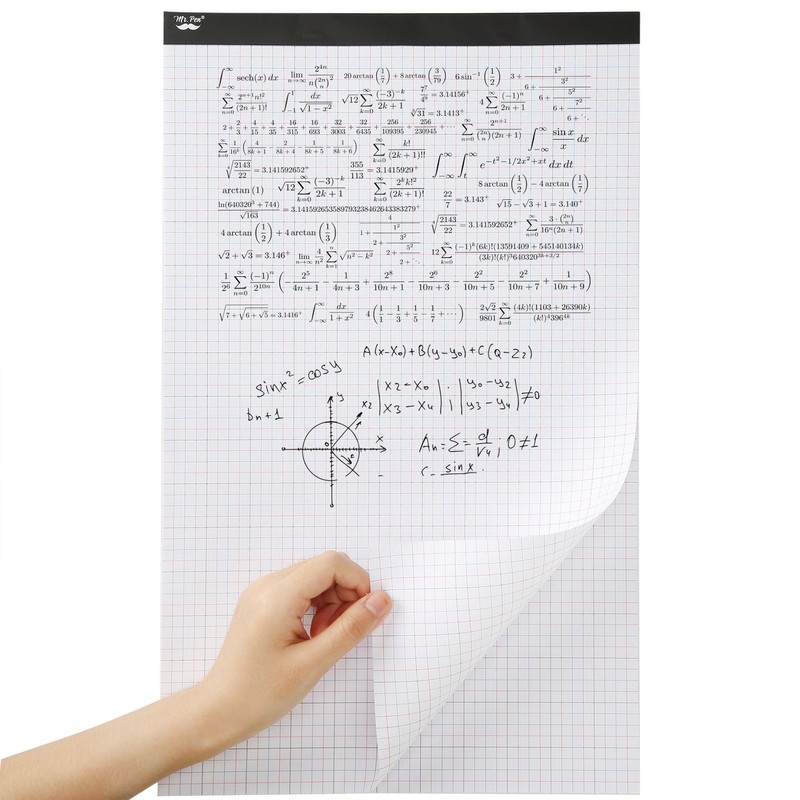 Mr. Pen®
∫_{-∞}^{∞} sech(x) dx   lim_{n→∞} 2^{4n} / (n \binom{2n}{n}^2)   20 arctan(1/7) + 8 arctan(3/79)   6 sin^{-1}(1/2)   3 + 1²/(6 + 3²/(6 + 5²/(6 + 7²/(6 + ⋱))))
∑_{n=0}^{∞} 2^{n+1}n!²/(2n+1)!   ∫_{-1}^{1} dx/√(1−x²)   √12 ∑_{k=0}^{∞} (−3)^{-k}/(2k+1)   7⁷/4⁹ = 3.14156⁺   4 ∑_{n=0}^{∞} (−1)^n/(2n+1)
∛31 = 3.1413⁺
2 + 2/3 + 4/15 + 4/35 + 16/315 + 16/693 + 32/3003 + 32/6435 + 256/109395 + 256/230945 + ⋯   ∑_{n=0}^{∞} 2^{n+1}/(\binom{2n}{n}(2n+1))   ∫_{-∞}^{∞} sin x/x dx
∑_{k=0}^{∞} 1/16^k (4/(8k+1) − 2/(8k+4) − 1/(8k+5) − 1/(8k+6))   ∑_{k=0}^{∞} k!/(2k+1)!!
∫_{-∞}^{∞} ∫_{t}^{∞} e^{−t²−1/2x²+xt} dx dt
∜(2143/22) = 3.141592652⁺   355/113 = 3.1415929⁺
arctan(1)   √12 ∑_{k=0}^{∞} (−3)^{-k}/(2k+1)   ∑_{k=0}^{∞} 2^k k!²/(2k+1)!   8 arctan(1/2) − 4 arctan(1/7)
22/7 = 3.143⁺   √15 − √3 + 1 = 3.140⁺
ln(640320³ + 744)/√163 = 3.141592653589793238462643383279⁺
∜(2143/22) = 3.141592652⁺   ∑_{n=0}^{∞} 3·\binom{2n}{n}/(16^n(2n+1))
4 arctan(1/2) + 4 arctan(1/3)   4/(1 + 1²/(2 + 3²/(2 + 5²/(2 + ⋱))))
√2 + √3 = 3.146⁺   lim_{n→∞} 4/n² ∑_{k=1}^{n} √(n² − k²)   12 ∑_{k=0}^{∞} (−1)^k(6k)!(13591409 + 545140134k)/((3k)!(k!)³640320^{3k+3/2})
1/2⁶ ∑_{n=0}^{∞} (−1)^n/2^{10n} (−2⁵/(4n+1) − 1/(4n+3) + 2⁸/(10n+1) − 2⁶/(10n+3) − 2²/(10n+5) − 2²/(10n+7) + 1/(10n+9))
√(7 + √(6 + √5)) = 3.1416⁺   ∫_{-∞}^{∞} dx/(1+x²)   4(1/1 − 1/3 + 1/5 − 1/7 + ⋯)   2√2/9801 ∑_{k=0}^{∞} (4k)!(1103 + 26390k)/((k!)⁴396^{4k})
A(x-X₀)+B(y-y₀)+C(Q-Z₂)
sinx²=cosy
|x2-x₀ / x3-x4| · / 1 |y₀-y2 / y3-y4| ≠0
bn+1
y
x2
x
0
An=Σ= d/√4; 0≠1
C- sinx.